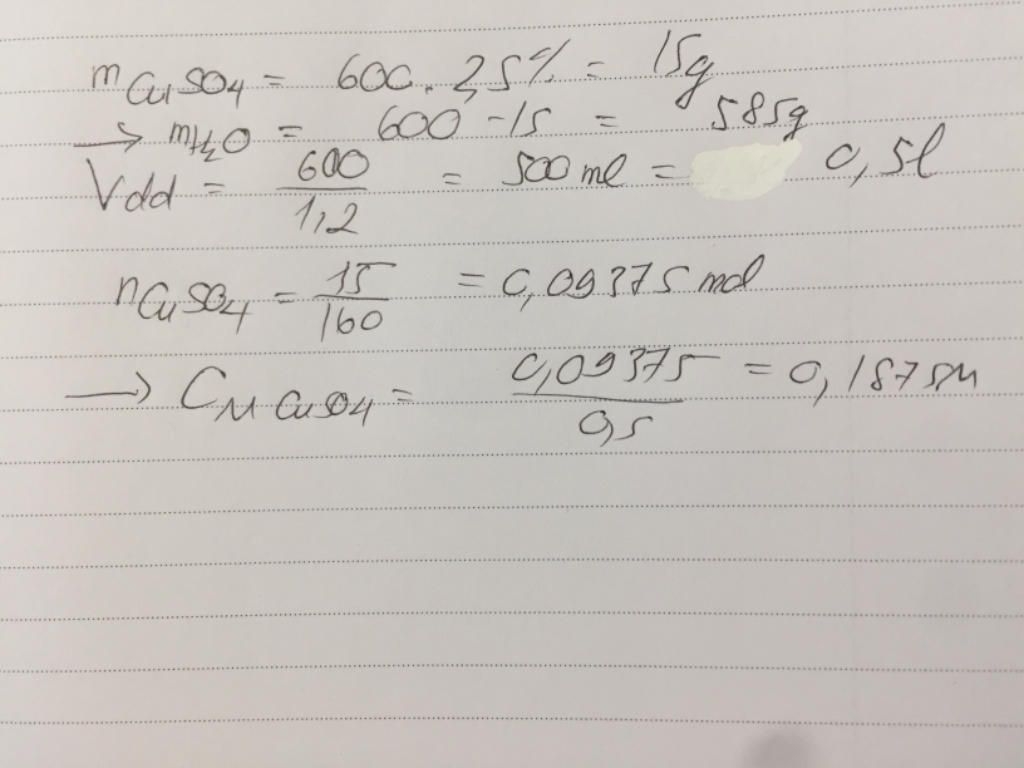 mCuSO4 = 600 . 2,5% = 15g
→ mH2O = 600 - 15 = 585g
Vdd = 600/1,2 = 500 ml = 0,5l
nCuSO4 = 15/160 = 0,09375 mol
→ CM CuSO4 = 0,09375/0,5 = 0,1875M